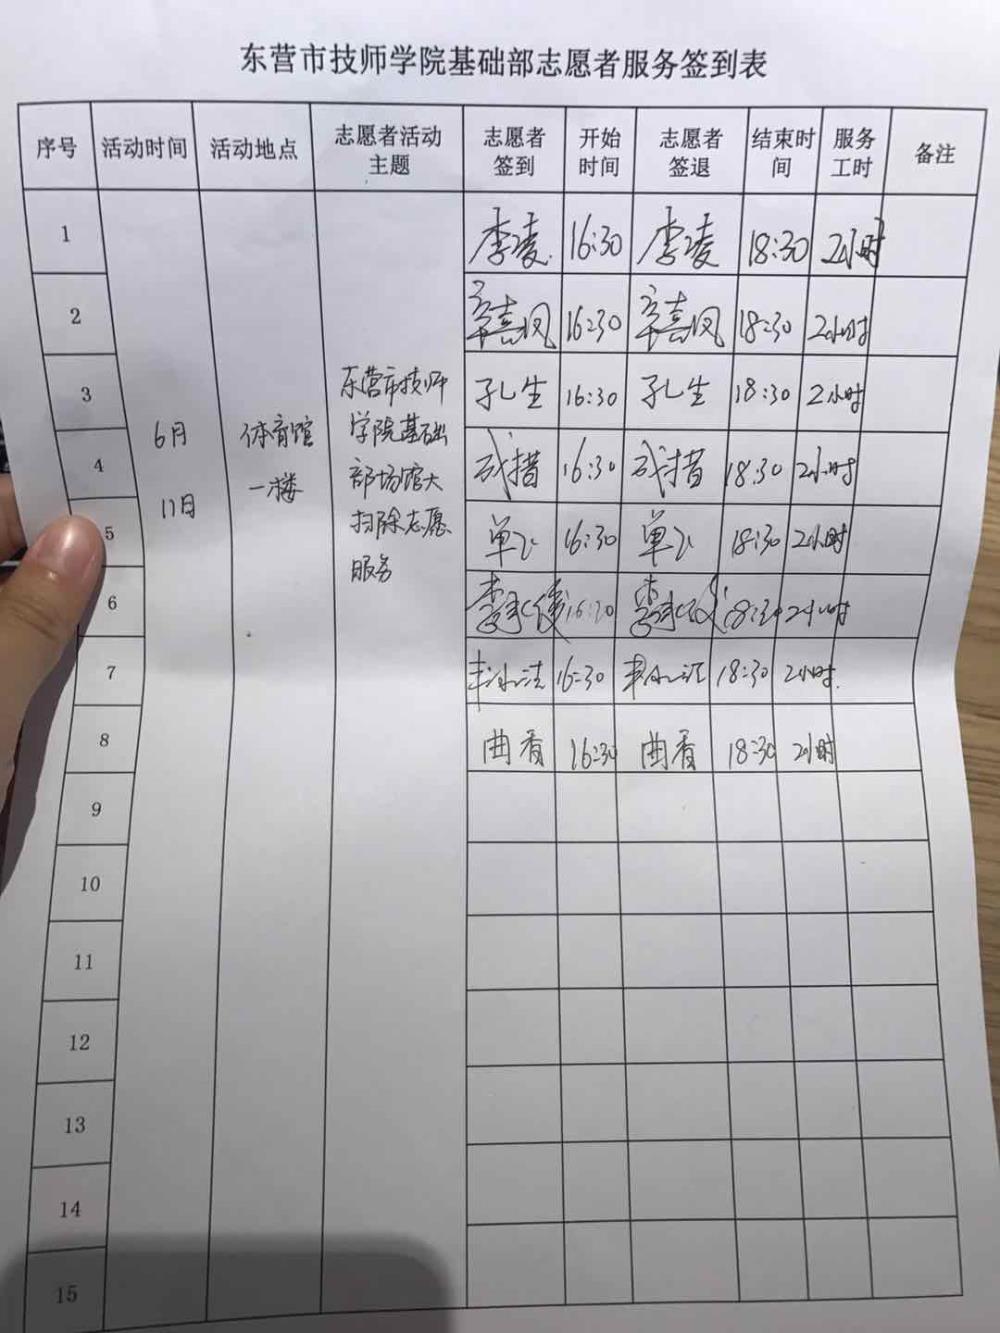 东营市技师学院基础部志愿者服务签到表
序号 活动时间 活动地点 志愿者活动主题 志愿者签到 开始时间 志愿者签退 结束时间 服务工时 备注
6月11日
体育馆一楼
东营市技师
学院基础
部场馆大
扫除志愿
服务
1 李凌 16:30 李凌 18:30 2小时
2 辛喜凤 16:30 辛喜凤 18:30 2小时
3 孔生 16:30 孔生 18:30 2小时
4 成措 16:30 成措 18:30 2小时
5 单飞 16:30 单飞 18:30 2小时
6 18:30 2小时
7 16:30 18:30 2小时
8 曲香 16:30 曲香 18:30 2小时
9
10
11
12
13
14
15